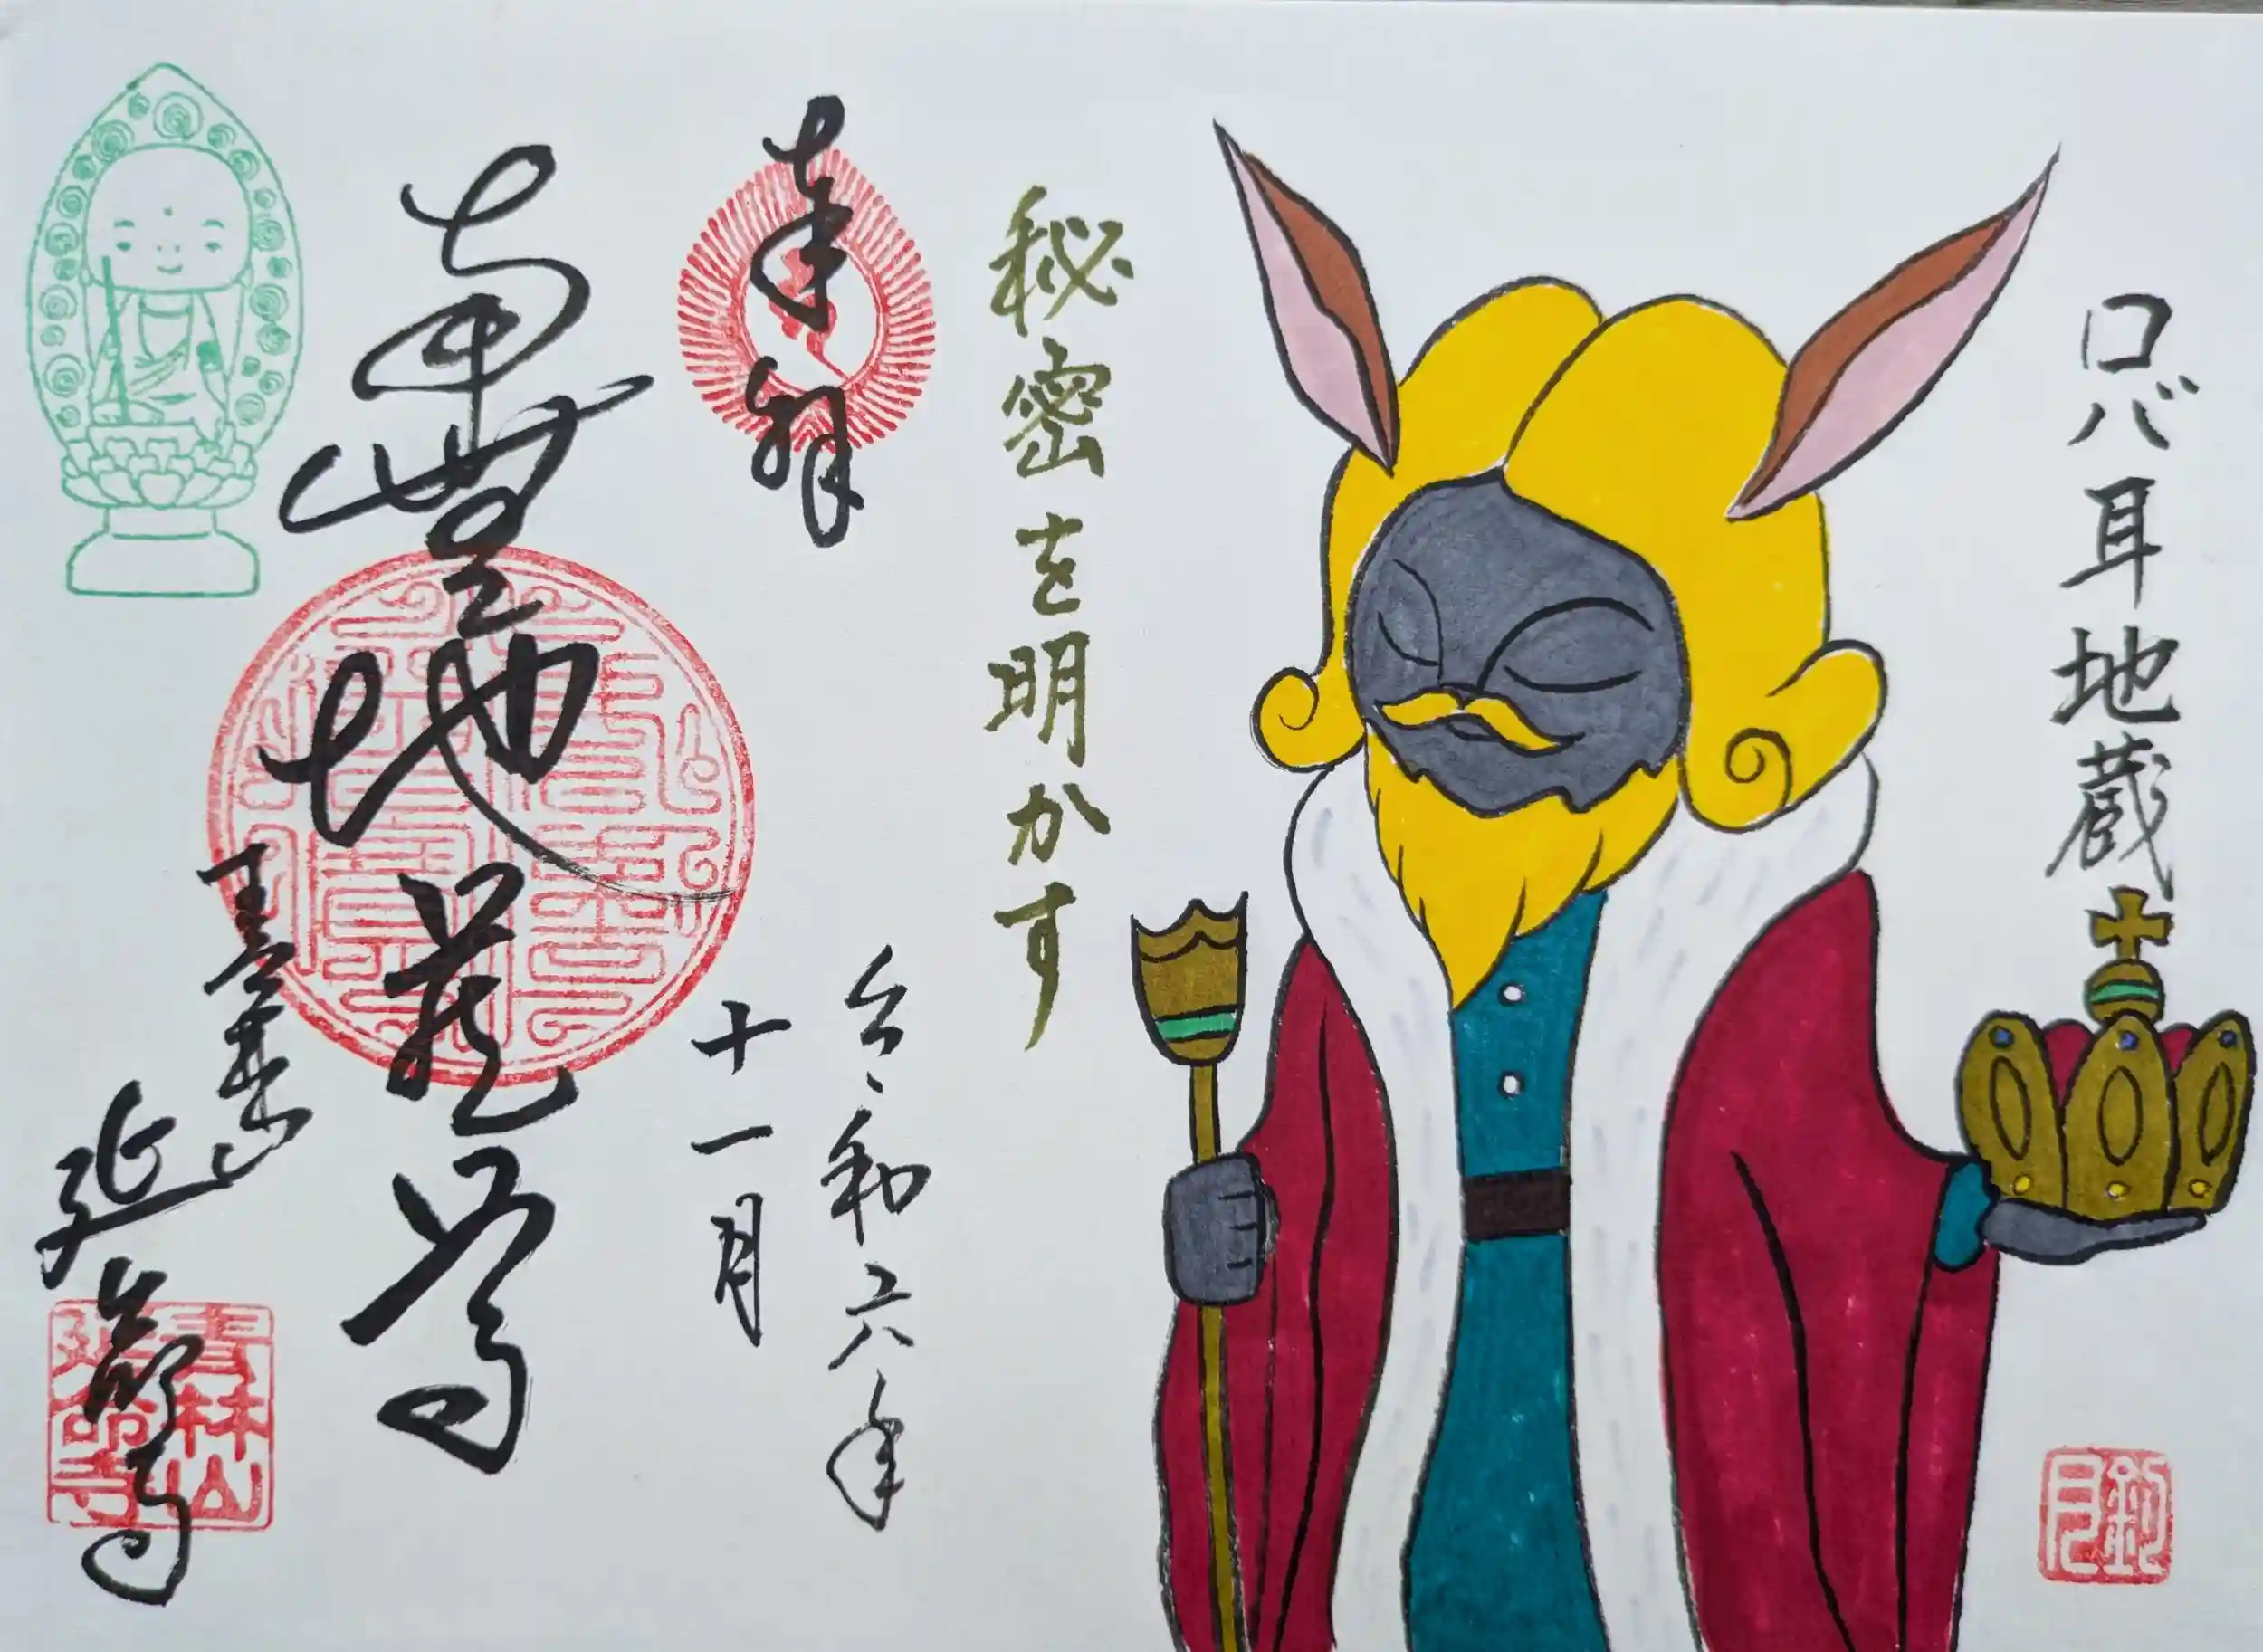 ロバ耳地蔵
秘密を明かす
奉拝
令和六年
十一月
地蔵尊
延命寺
青林山
延命寺